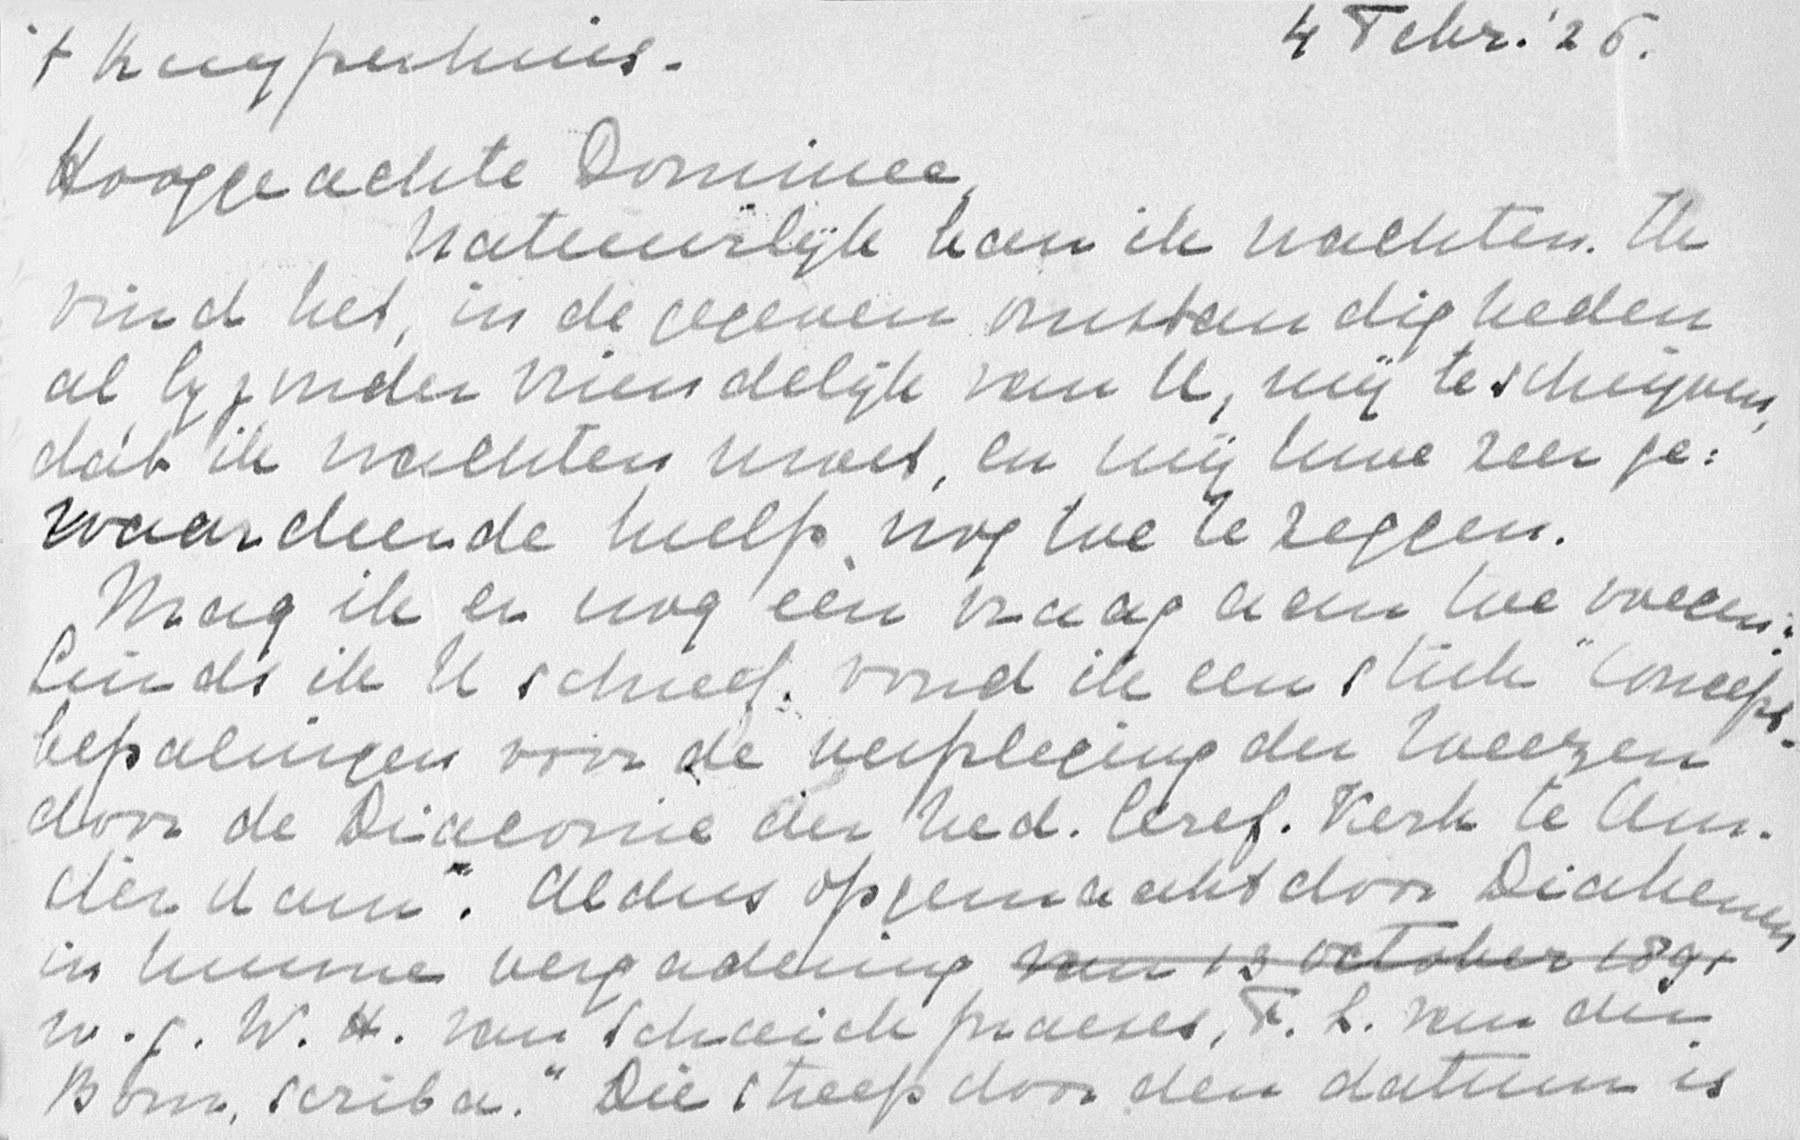 't Kuyperhuis.
4 Febr. '26.
Hooggeachte Dominee,
Natuurlijk kan ik wachten. Ik
vind het, in de gegeven omstandigheden
al byzonder vriendelijk van U, mij te schrijven,
dát ik wachten moet, en mij Uwe zeer ge:
waardeerde hulp nog toe te zeggen.
Mag ik er nog één vraag aan toe voegen:
Sinds ik U schreef. vond ik een stuk "Concept-
bepalingen voor de verpleging der Weezen
door de Diaconie der Ned. Geref. Kerk te Am.
sterdam". Aldus opgemaakt door Diakenen
in hunne vergadering van 13 october 1891
w.g. W. H. van Schaick praeses, F. L. van den
Bom, scriba." Die streep door den datum is